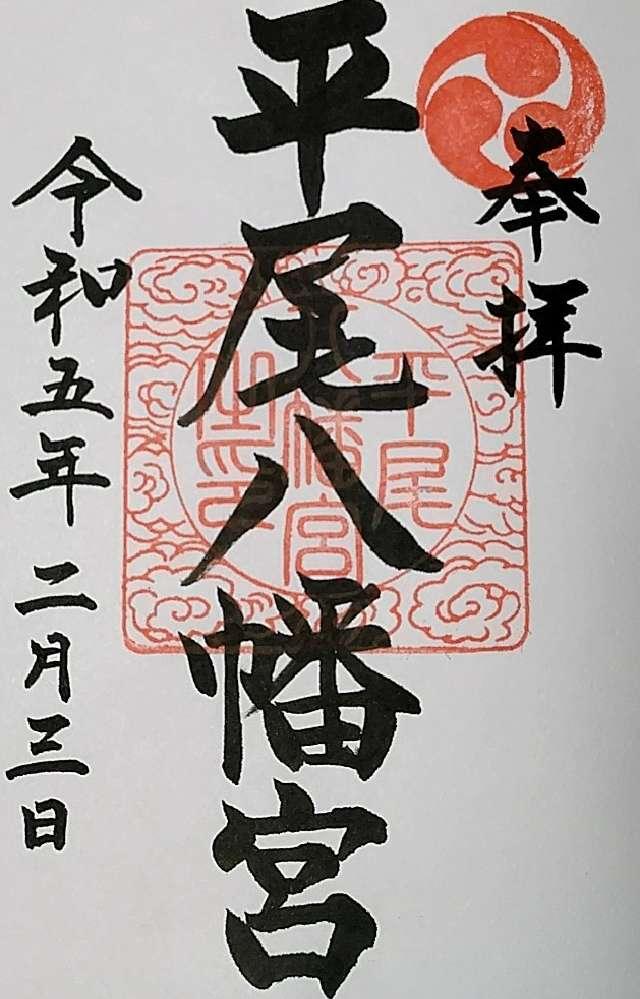 奉拝
平尾八幡宮
平尾
八幡宮
之印
令和五年二月三日